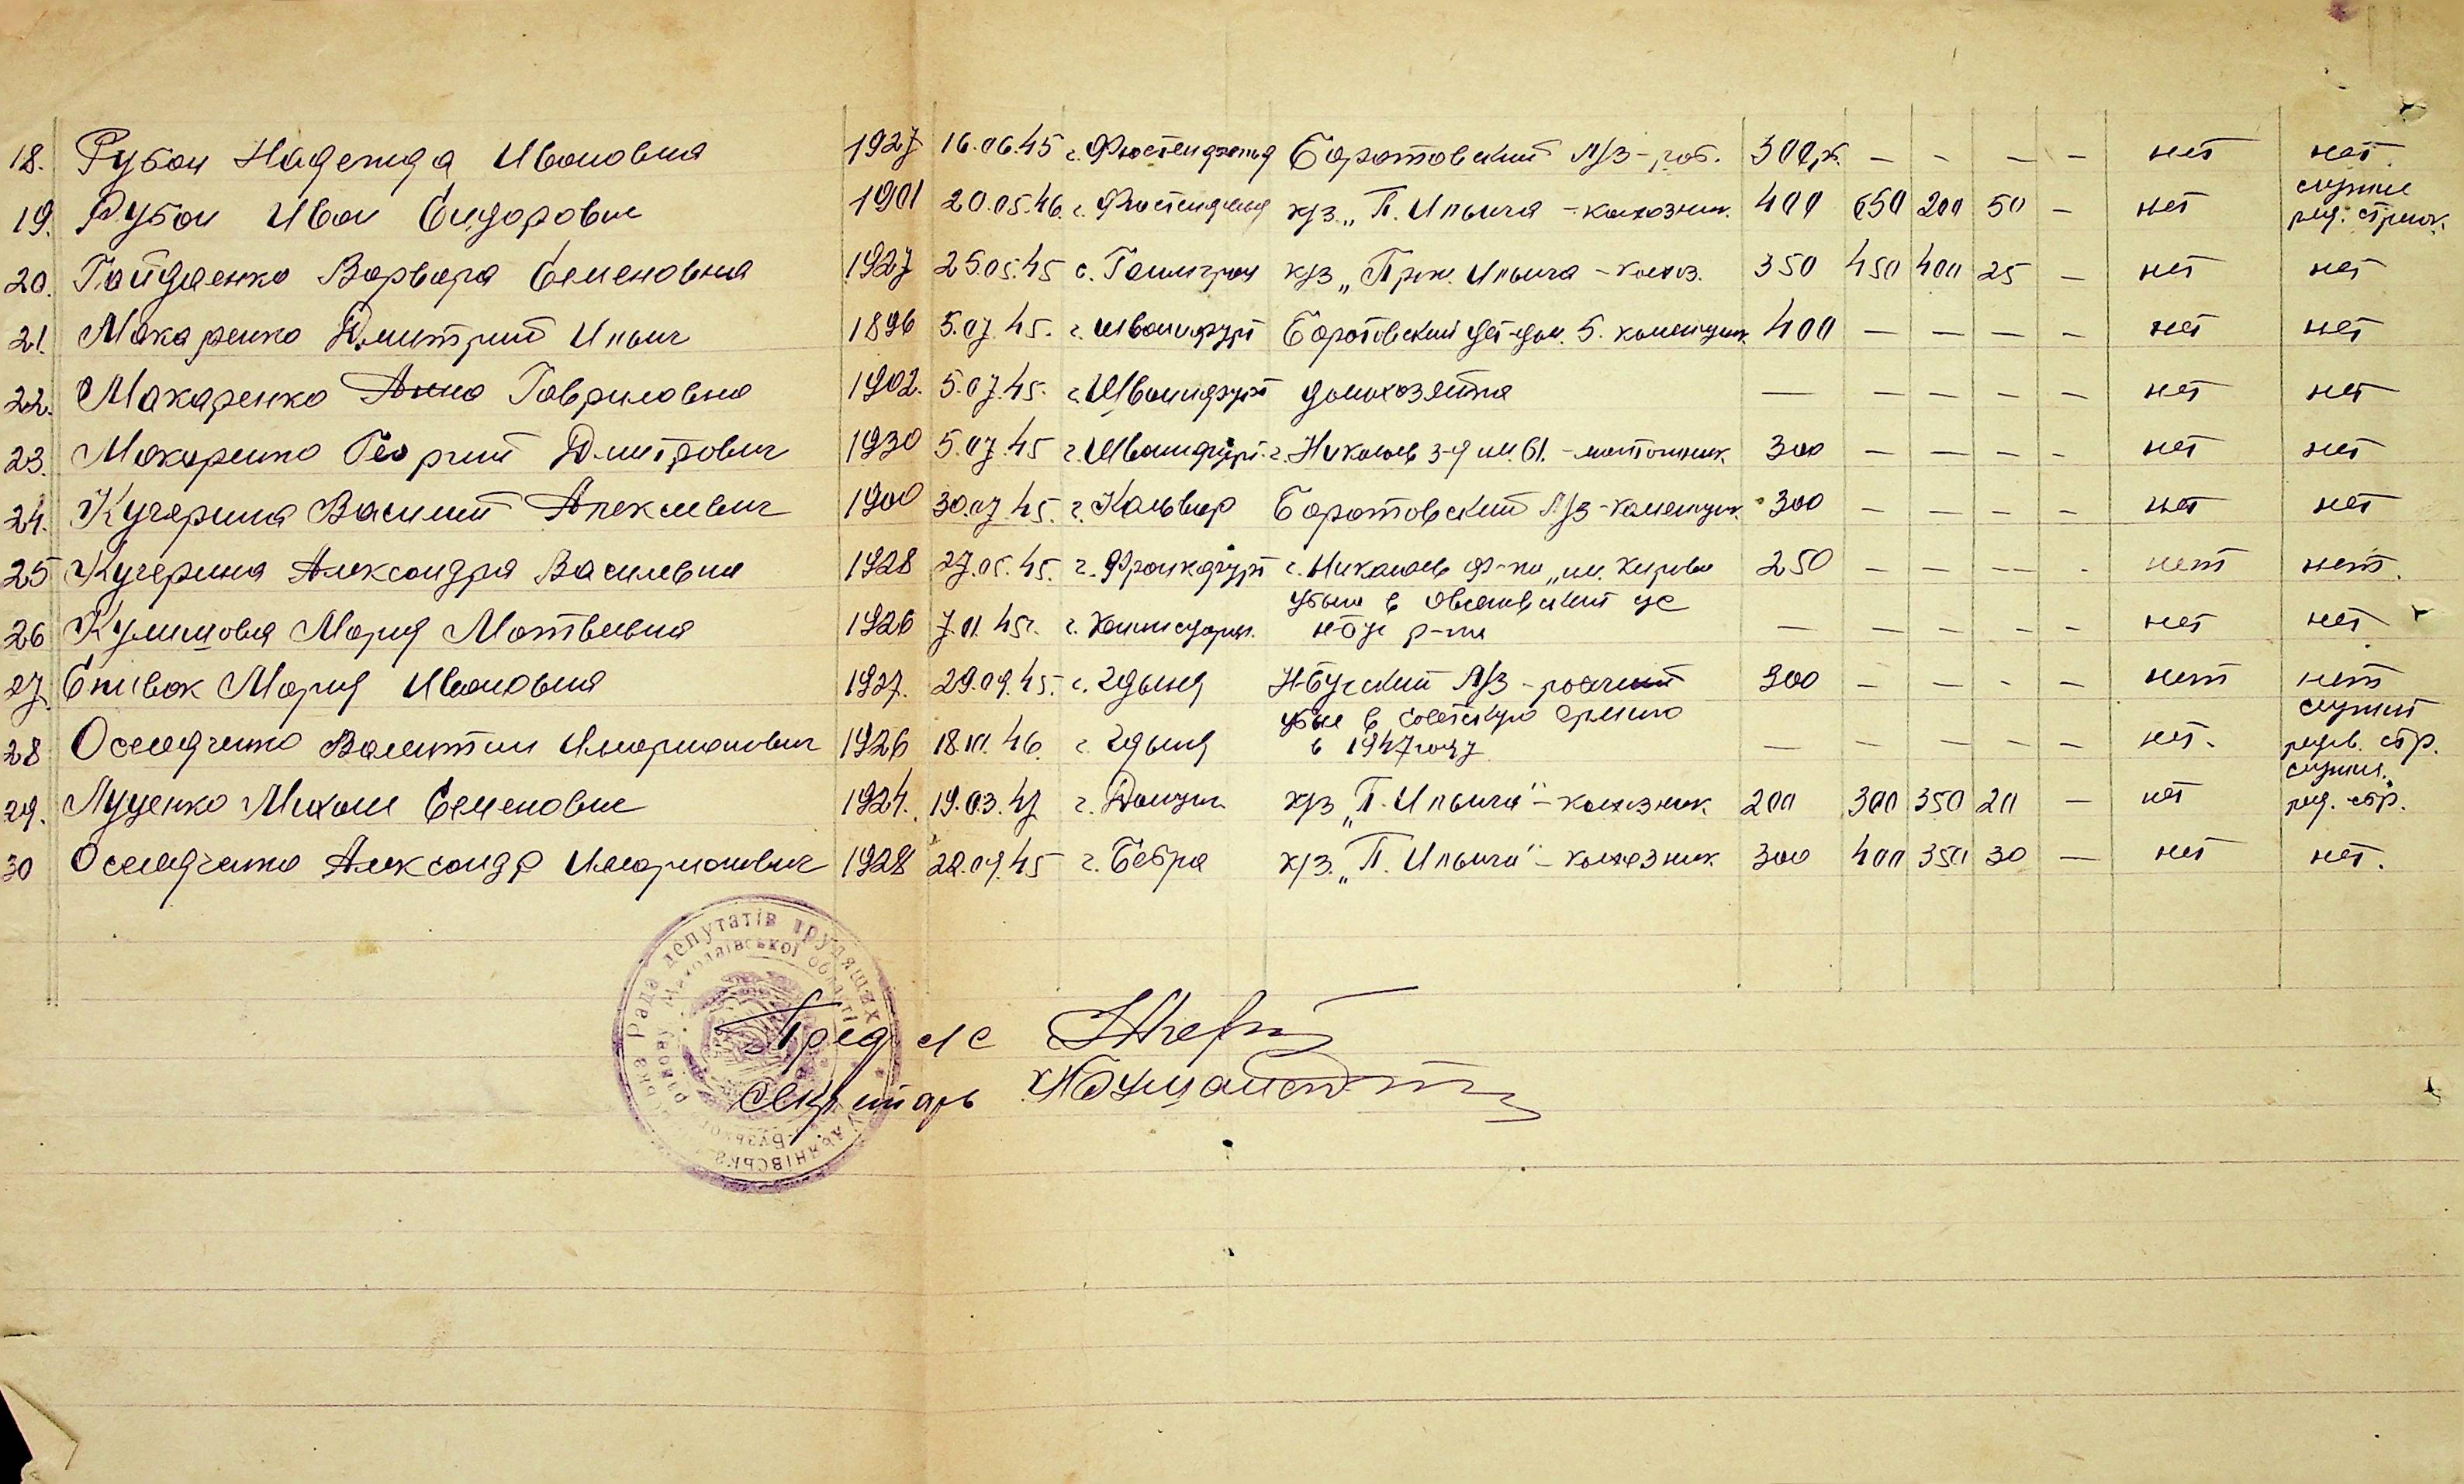 18. Рубан Надежда Ивановна 1927 16.06.45 г. Фюстенфельд Баратовский л/з – раб. 300р. – – – – нет нет
19. Рубан Иван Сидорович 1901 20.05.46 г. к/з „П. Ильича – колхозник. 400 650 200 50 – нет служил ряд. стрелк.
20. Гайдаенко Варвара Семеновна 1927 25.05.45 к/з „Пям. Ильича – колхоз. 350 450 400 25 – нет нет
21. Макаренко Дмитрий Ильич 1896 5.07.45. г. Швайнфурт Баратовский дет-дом. 400 – – – – нет нет
22. Макаренко Анна Гавриловна 1902. 5.07.45. г. Швайнфурт домохозяйка – – – – – нет нет
23. Макаренко Георгий Дмитрович 1930 5.07.45 г. Швайнфурт. г. Николаев з-д им. 61. – 300 – – – – нет нет
24. Кучерина Василий Алексеевич 1900 30.07.45. г. Кальвар Баратовский л/з – каменщик. 300 – – – – нет нет
25 Кучерина Александра Василевна 1928 27.05.45. г. Франкфурт г. Николаев ф-ка „им. Кирова 250 – – – – нет нет.
26 Климова Мария Матвеевна 1926 7.11.45г. г. убыла в Явкинский с/с
н-Буг р-на – – – – – нет нет
27. Спивак Мария Ивановна 1927. 29.09.45. г. Гдыня Н-Бугский л/з – рабочий 300 – – – – нет нет
28 Оселедченко Валентин Иларионович 1926 18.11.46. г. Гдыня убыл в Советскую Армию
в 1947 году – – – – – нет. служит рядов. стр.
29. Луценко Михаил Семенович 1924. 19.03.47 г. Данциг к/з „П. Ильича“ – колхозник 200 300 350 20 – нет служил. ряд. стр.
30 Оселедченко Александр Иларионович 1928 22.09.45 г. Бебра к/з. „П. Ильича“ – колхозник 300 400 350 30 – нет нет.
Рада депутатів трудящих
Миколаївської області
Пред с/с
Секретарь